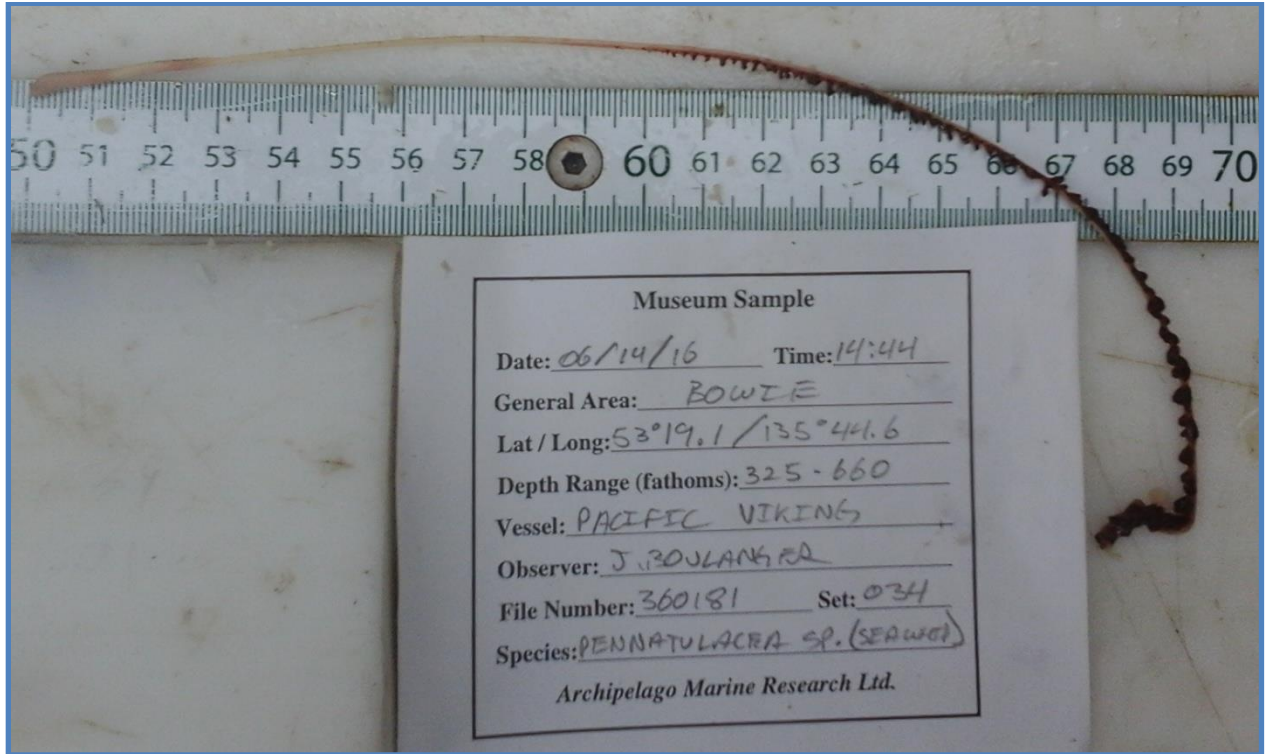 50 51 52 53 54 55 56 57 58 60 61 62 63 64 65 66 67 68 69 70
Museum Sample
Date: 06/14/16 Time: 14:44
General Area: BOWIE
Lat / Long: 53°19.1 / 135°44.6
Depth Range (fathoms): 325 - 660
Vessel: PACIFIC VIKING
Observer: J. BOULANGER
File Number: 360181 Set: 034
Species: PENNATULACEA SP.
Archipelago Marine Research Ltd.